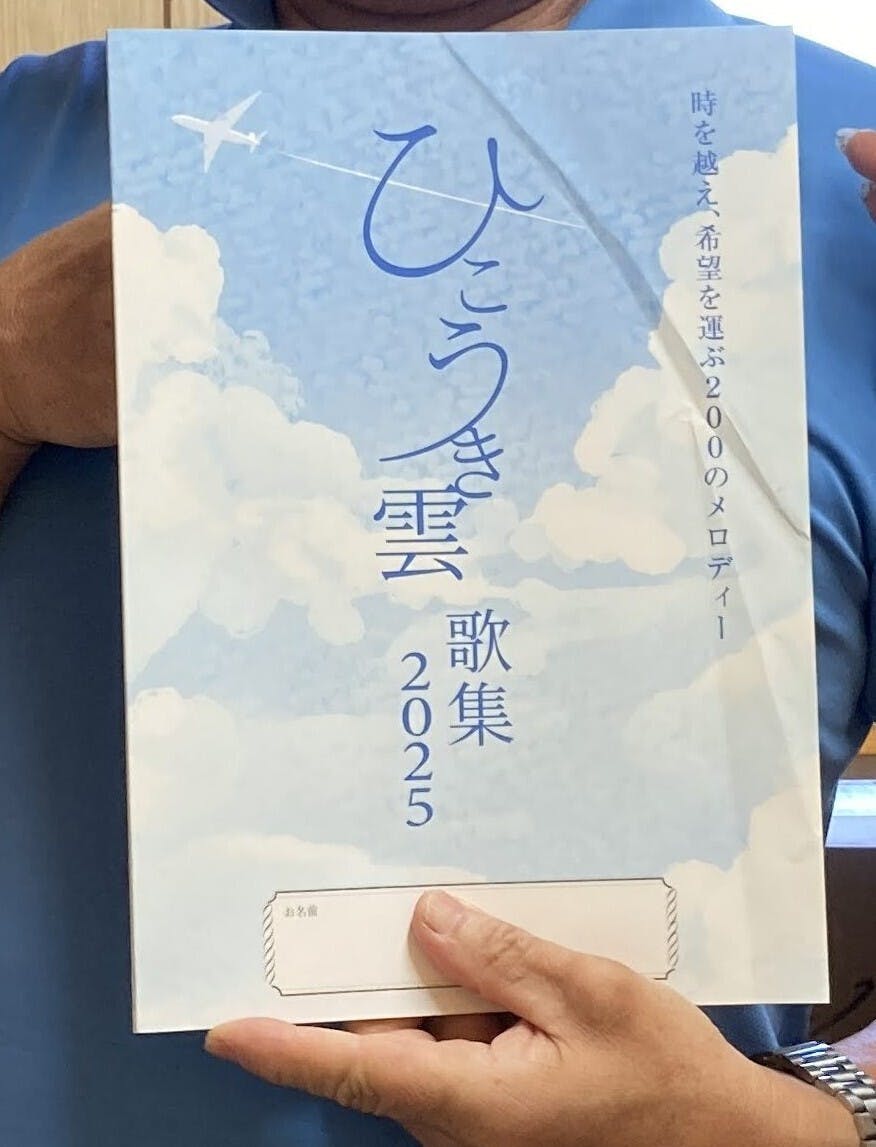 時を越え、希望を運ぶ200のメロディー
ひこうき雲
歌集
2025
お名前